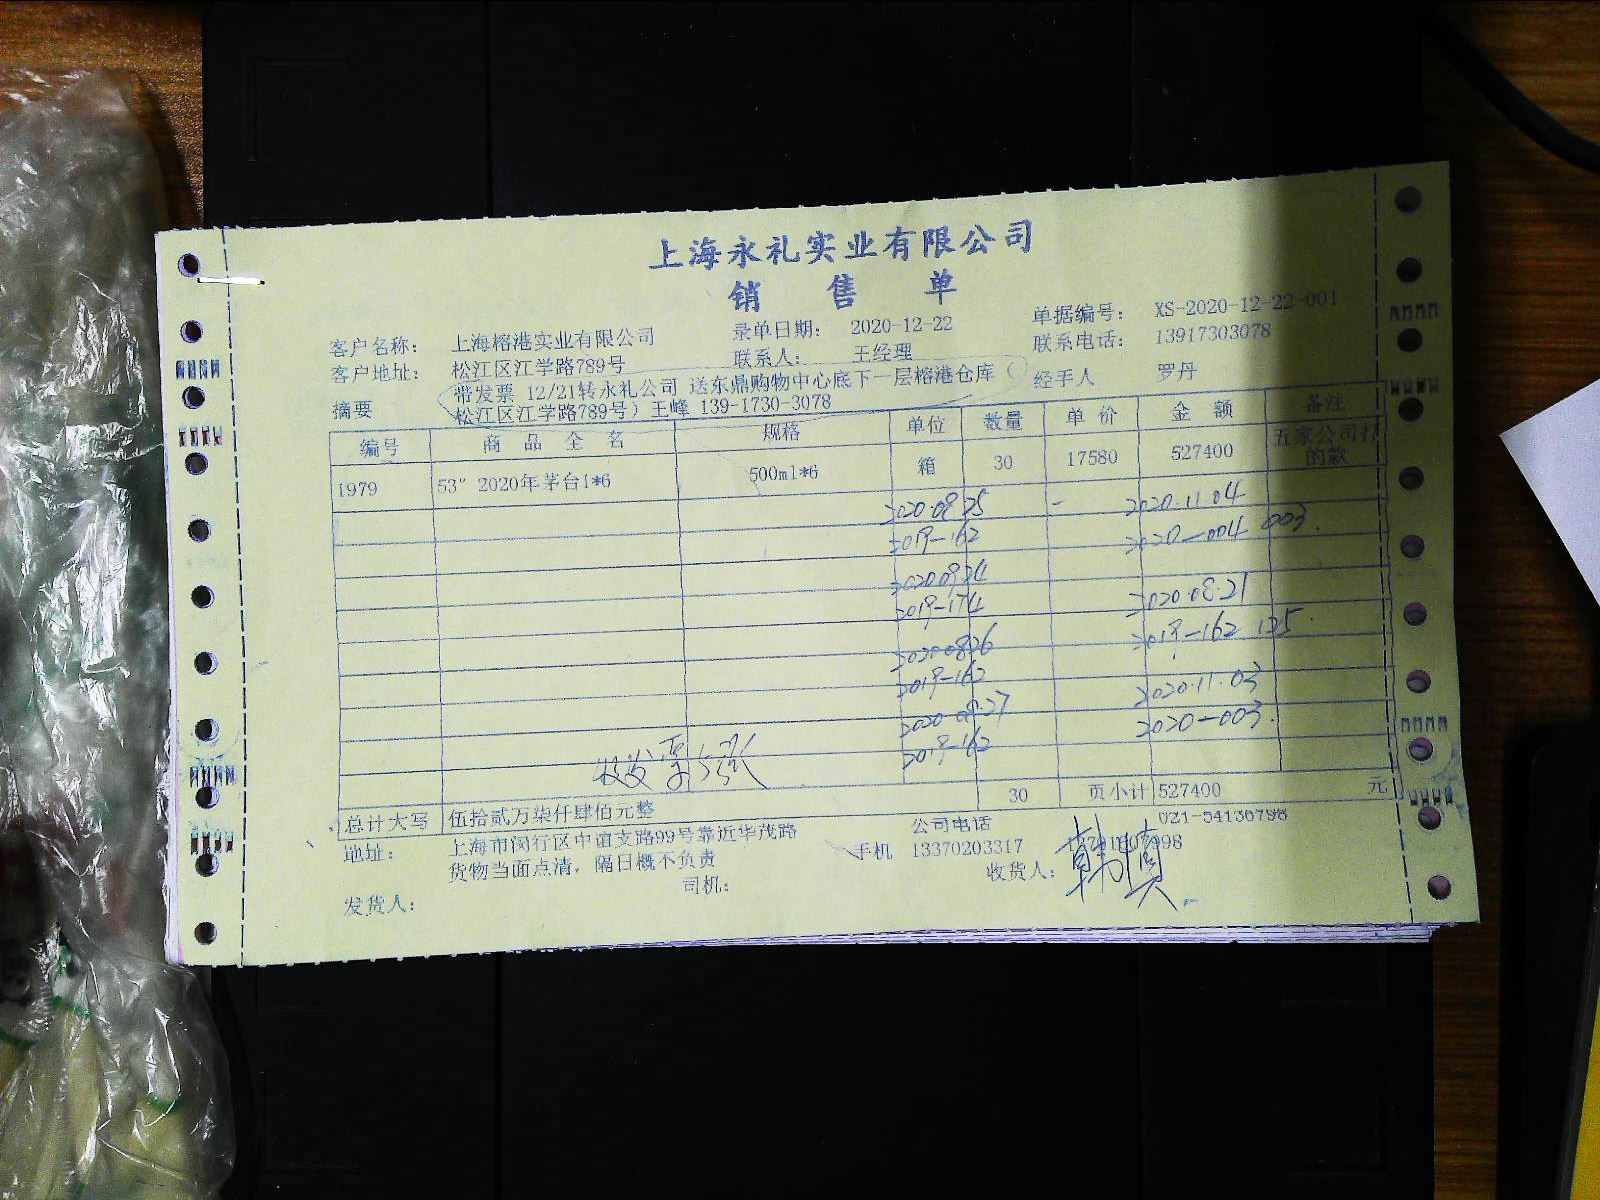 上海永礼实业有限公司
销 售 单
客户名称： 上海榕港实业有限公司 录单日期： 2020-12-22 单据编号： XS-2020-12-22-001
客户地址： 松江区江学路789号 联系人： 王经理 联系电话： 13917303078
摘要 带发票 12/21转永礼公司 送东鼎购物中心底下一层榕港仓库（ 经手人 罗丹
松江区江学路789号）王峰 139-1730-3078
编号 商 品 全 名 规格 单位 数量 单 价 金 额 备注
1979 53" 2020年茅台1*6 500ml*6 箱 30 17580 527400 五家公司打
的款
2020.08.25 - 2020.11.04
2019-162 2020-004 003.
2020.09.24
2019-174 2020.08.21
2020.08.26 2019-162 135.
2019-162
2020.08.27 2020.11.03
2019-162 2020-003.
收发票
总计大写 伍拾贰万柒仟肆佰元整 30 页小计 527400 元
地址： 上海市闵行区中谊支路99号靠近华茂路 公司电话 021-54136798
货物当面点清，隔日概不负责 手机 13370203317
发货人： 司机： 收货人：